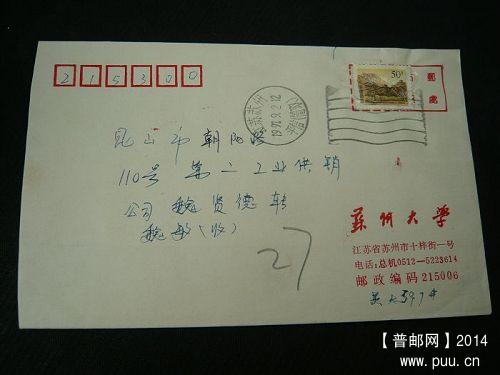 215300
50分
郵
江苏苏州
1997.9.2.12
昆山市朝阳路
110号第二工业供销
公司魏贤德转
魏敏(收)
27
蘇州大学
江苏省苏州市十梓街一号
电话:总机0512—5223614
邮政编码215006
【普邮网】2014
www.puu.cn